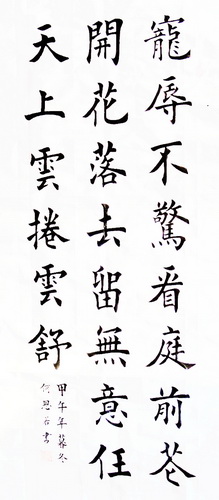 寵辱不驚看庭前芲
開花落去留無意任
天上雲捲雲舒
甲午年暮冬
書